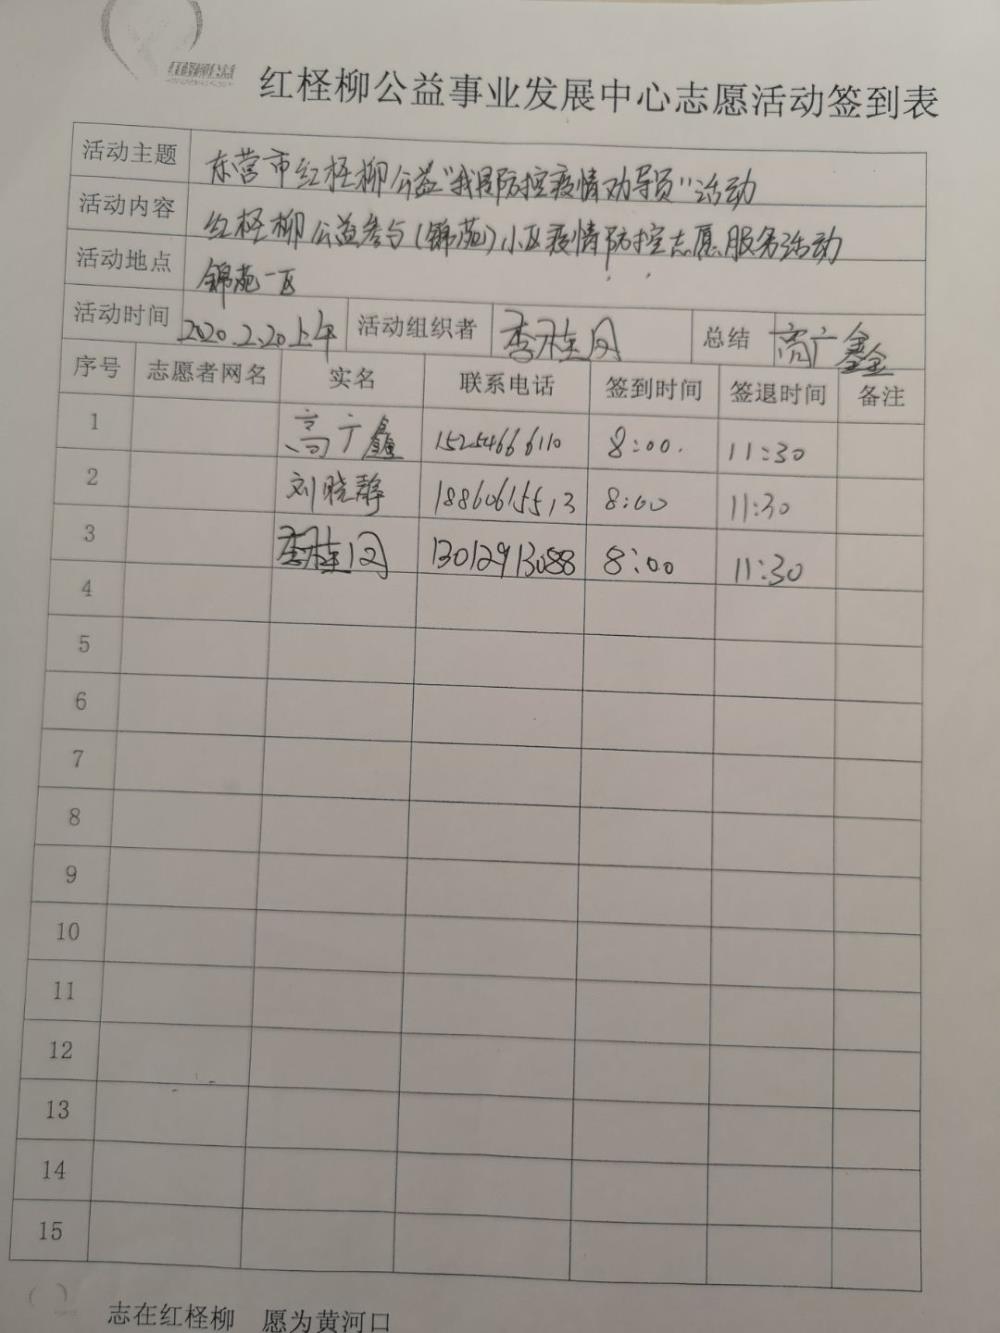 红柽柳公益事业发展中心志愿活动签到表
活动主题 东营市红柽柳公益"我是防控疫情劝导员"活动
活动内容 红柽柳公益参与(锦苑)小区疫情防控志愿服务活动
活动地点 锦苑一区
活动时间 2020.2.20上午 活动组织者 李桂闪 总结 高广鑫
序号 志愿者网名 实名 联系电话 签到时间 签退时间 备注
1 高广鑫 15254666110 8:00. 11:30
2 刘晓静 18860615513 8:00 11:30
3 李桂闪 13012913088 8:00 11:30
4
5
6
7
8
9
10
11
12
13
14
15
志在红柽柳 愿为黄河口